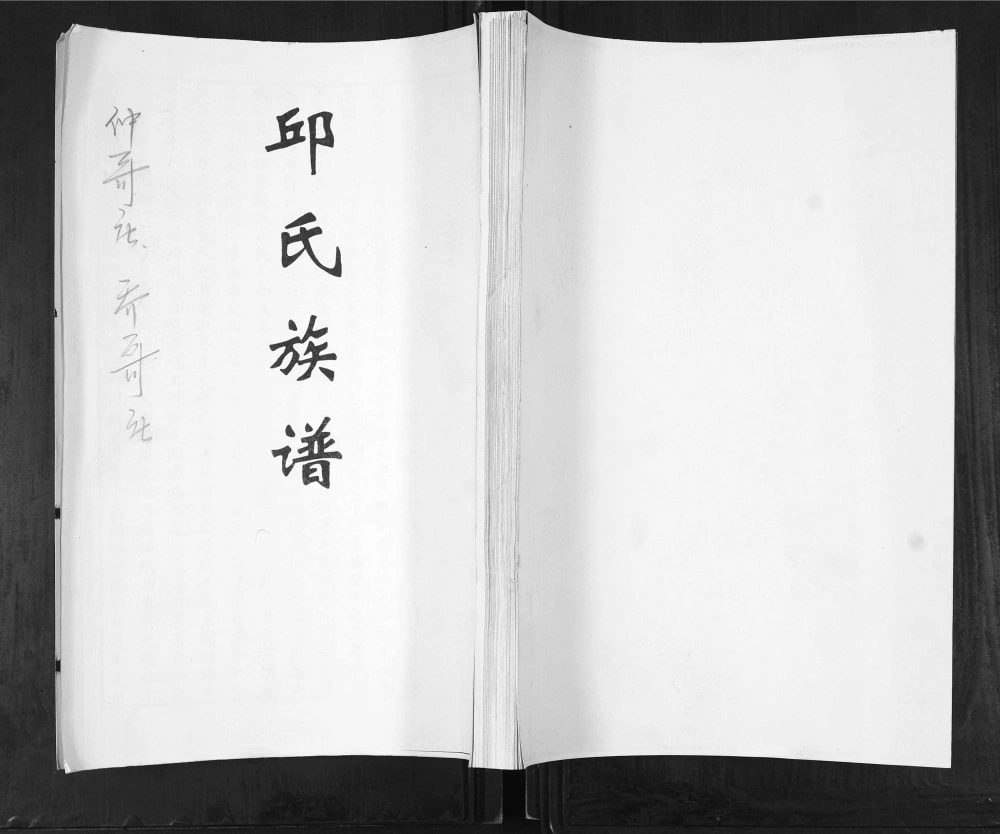 邱氏族谱
仲哥社、乔哥社